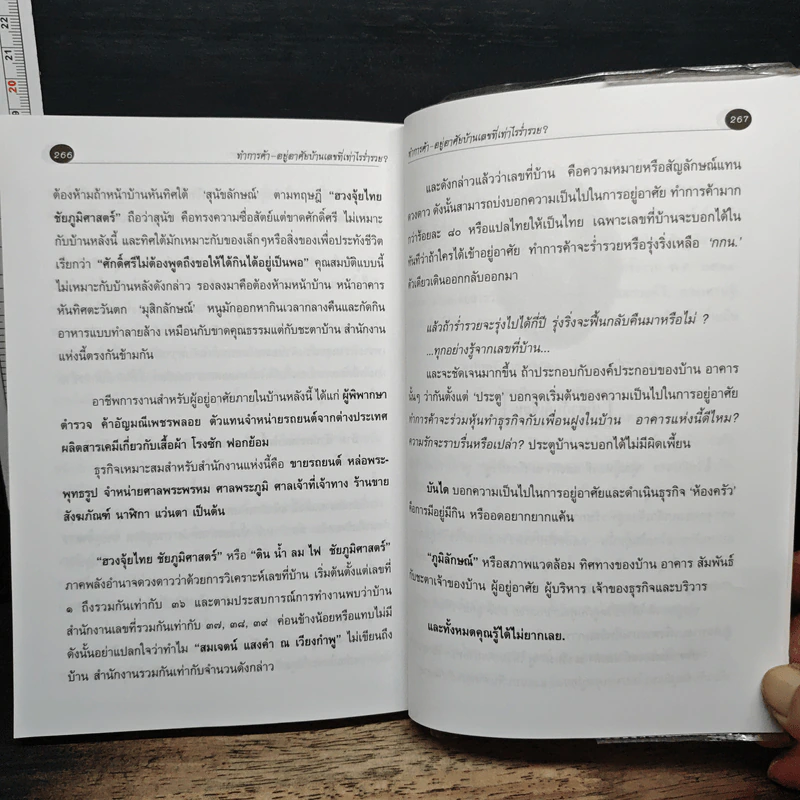 22
21
20
266
ทำการค้า-อยู่อาศัยบ้านเลขที่เท่าไรร่ำรวย?
ต้องห้ามถ้าหน้าบ้านหันทิศใต้ ‘สุนัขลักษณ์’ ตามทฤษฎี “ฮวงจุ้ยไทย
ชัยภูมิศาสตร์” ถือว่าสุนัข คือทรงความซื่อสัตย์แต่ขาดศักดิ์ศรี ไม่เหมาะ
กับบ้านหลังนี้ และทิศใต้มักเหมาะกับของเล็กๆหรือสิ่งของเพื่อประทังชีวิต
เรียกว่า “ศักดิ์ศรีไม่ต้องพูดถึงขอให้ได้กินได้อยู่เป็นพอ” คุณสมบัติแบบนี้
ไม่เหมาะกับบ้านหลังดังกล่าว รองลงมาคือต้องห้ามบ้าน หน้าอาคาร
หันทิศตะวันตก ‘มุสิกลักษณ์’ หนูมักออกหากินเวลากลางคืนและกัดกิน
อาหารแบบทำลายล้าง เหมือนกับขาดคุณธรรมแต่กับชะตาบ้าน สำนักงาน
แห่งนี้ตรงกันข้ามกัน
อาชีพการงานสำหรับผู้อยู่อาศัยภายในบ้านหลังนี้ ได้แก่ ผู้พิพากษา
ตำรวจ ค้าอัญมณีเพชรพลอย ตัวแทนจำหน่ายรถยนต์จากต่างประเทศ
ผลิตสารเคมีเกี่ยวกับเสื้อผ้า โรงซัก ฟอกย้อม
ธุรกิจเหมาะสมสำหรับสำนักงานแห่งนี้คือ ขายรถยนต์ หล่อพระ-
พุทธรูป จำหน่ายศาลพระพรหม ศาลพระภูมิ ศาลเจ้าที่เจ้าทาง ร้านขาย
สังฆภัณฑ์ นาฬิกา แว่นตา เป็นต้น
“ฮวงจุ้ยไทย ชัยภูมิศาสตร์” หรือ “ดิน น้ำ ลม ไฟ ชัยภูมิศาสตร์”
ภาคพลังอำนาจดวงดาวว่าด้วยการวิเคราะห์เลขที่บ้าน เริ่มต้นตั้งแต่เลขที่
๑ ถึงรวมกันเท่ากับ ๓๖ และตามประสบการณ์การทำงานพบว่าบ้าน
สำนักงานเลขที่รวมกันเท่ากับ ๓๗, ๓๘, ๓๙ ค่อนข้างน้อยหรือแทบไม่มี
ดังนั้นอย่าแปลกใจว่าทำไม “สมเจตน์ แสงคำ ณ เวียงกำพู” ไม่เขียนถึง
บ้าน สำนักงานรวมกันเท่ากับจำนวนดังกล่าว
267
ทำการค้า-อยู่อาศัยบ้านเลขที่เท่าไรร่ำรวย?
และดังกล่าวแล้วว่าเลขที่บ้าน คือความหมายหรือสัญลักษณ์แทน
ดวงดาว ดังนั้นสามารถบ่งบอกความเป็นไปในการอยู่อาศัย ทำการค้ามาก
กว่าร้อยละ ๘๐ หรือแปลไทยให้เป็นไทย เฉพาะเลขที่บ้านจะบอกได้ใน
ทันทีว่าถ้าใครได้เข้าอยู่อาศัย ทำการค้าจะร่ำรวยหรือรุ่งริ่งเหลือ ‘กกน.’
ตัวเดียวเดินออกกลับออกมา
แล้วถ้าร่ำรวยจะรุ่งไปได้กี่ปี รุ่งริ่งจะฟื้นกลับคืนมาหรือไม่ ?
...ทุกอย่างรู้จากเลขที่บ้าน...
และจะชัดเจนมากขึ้น ถ้าประกอบกับองค์ประกอบของบ้าน อาคาร
นั้นๆ ว่ากันตั้งแต่ ‘ประตู’ บอกจุดเริ่มต้นของความเป็นไปในการอยู่อาศัย
ทำการค้าจะร่วมหุ้นทำธุรกิจกับเพื่อนฝูงในบ้าน อาคารแห่งนี้ดีไหม?
ความรักจะราบรื่นหรือเปล่า? ประตูบ้านจะบอกได้ไม่มีผิดเพี้ยน
บันได บอกความเป็นไปในการอยู่อาศัยและดำเนินธุรกิจ ‘ห้องครัว’
คือการมีอยู่มีกิน หรืออดอยากยากแค้น
“ภูมิลักษณ์” หรือสภาพแวดล้อม ทิศทางของบ้าน อาคาร สัมพันธ์
กับชะตาเจ้าของบ้าน ผู้อยู่อาศัย ผู้บริหาร เจ้าของธุรกิจและบริวาร
และทั้งหมดคุณรู้ได้ไม่ยากเลย.